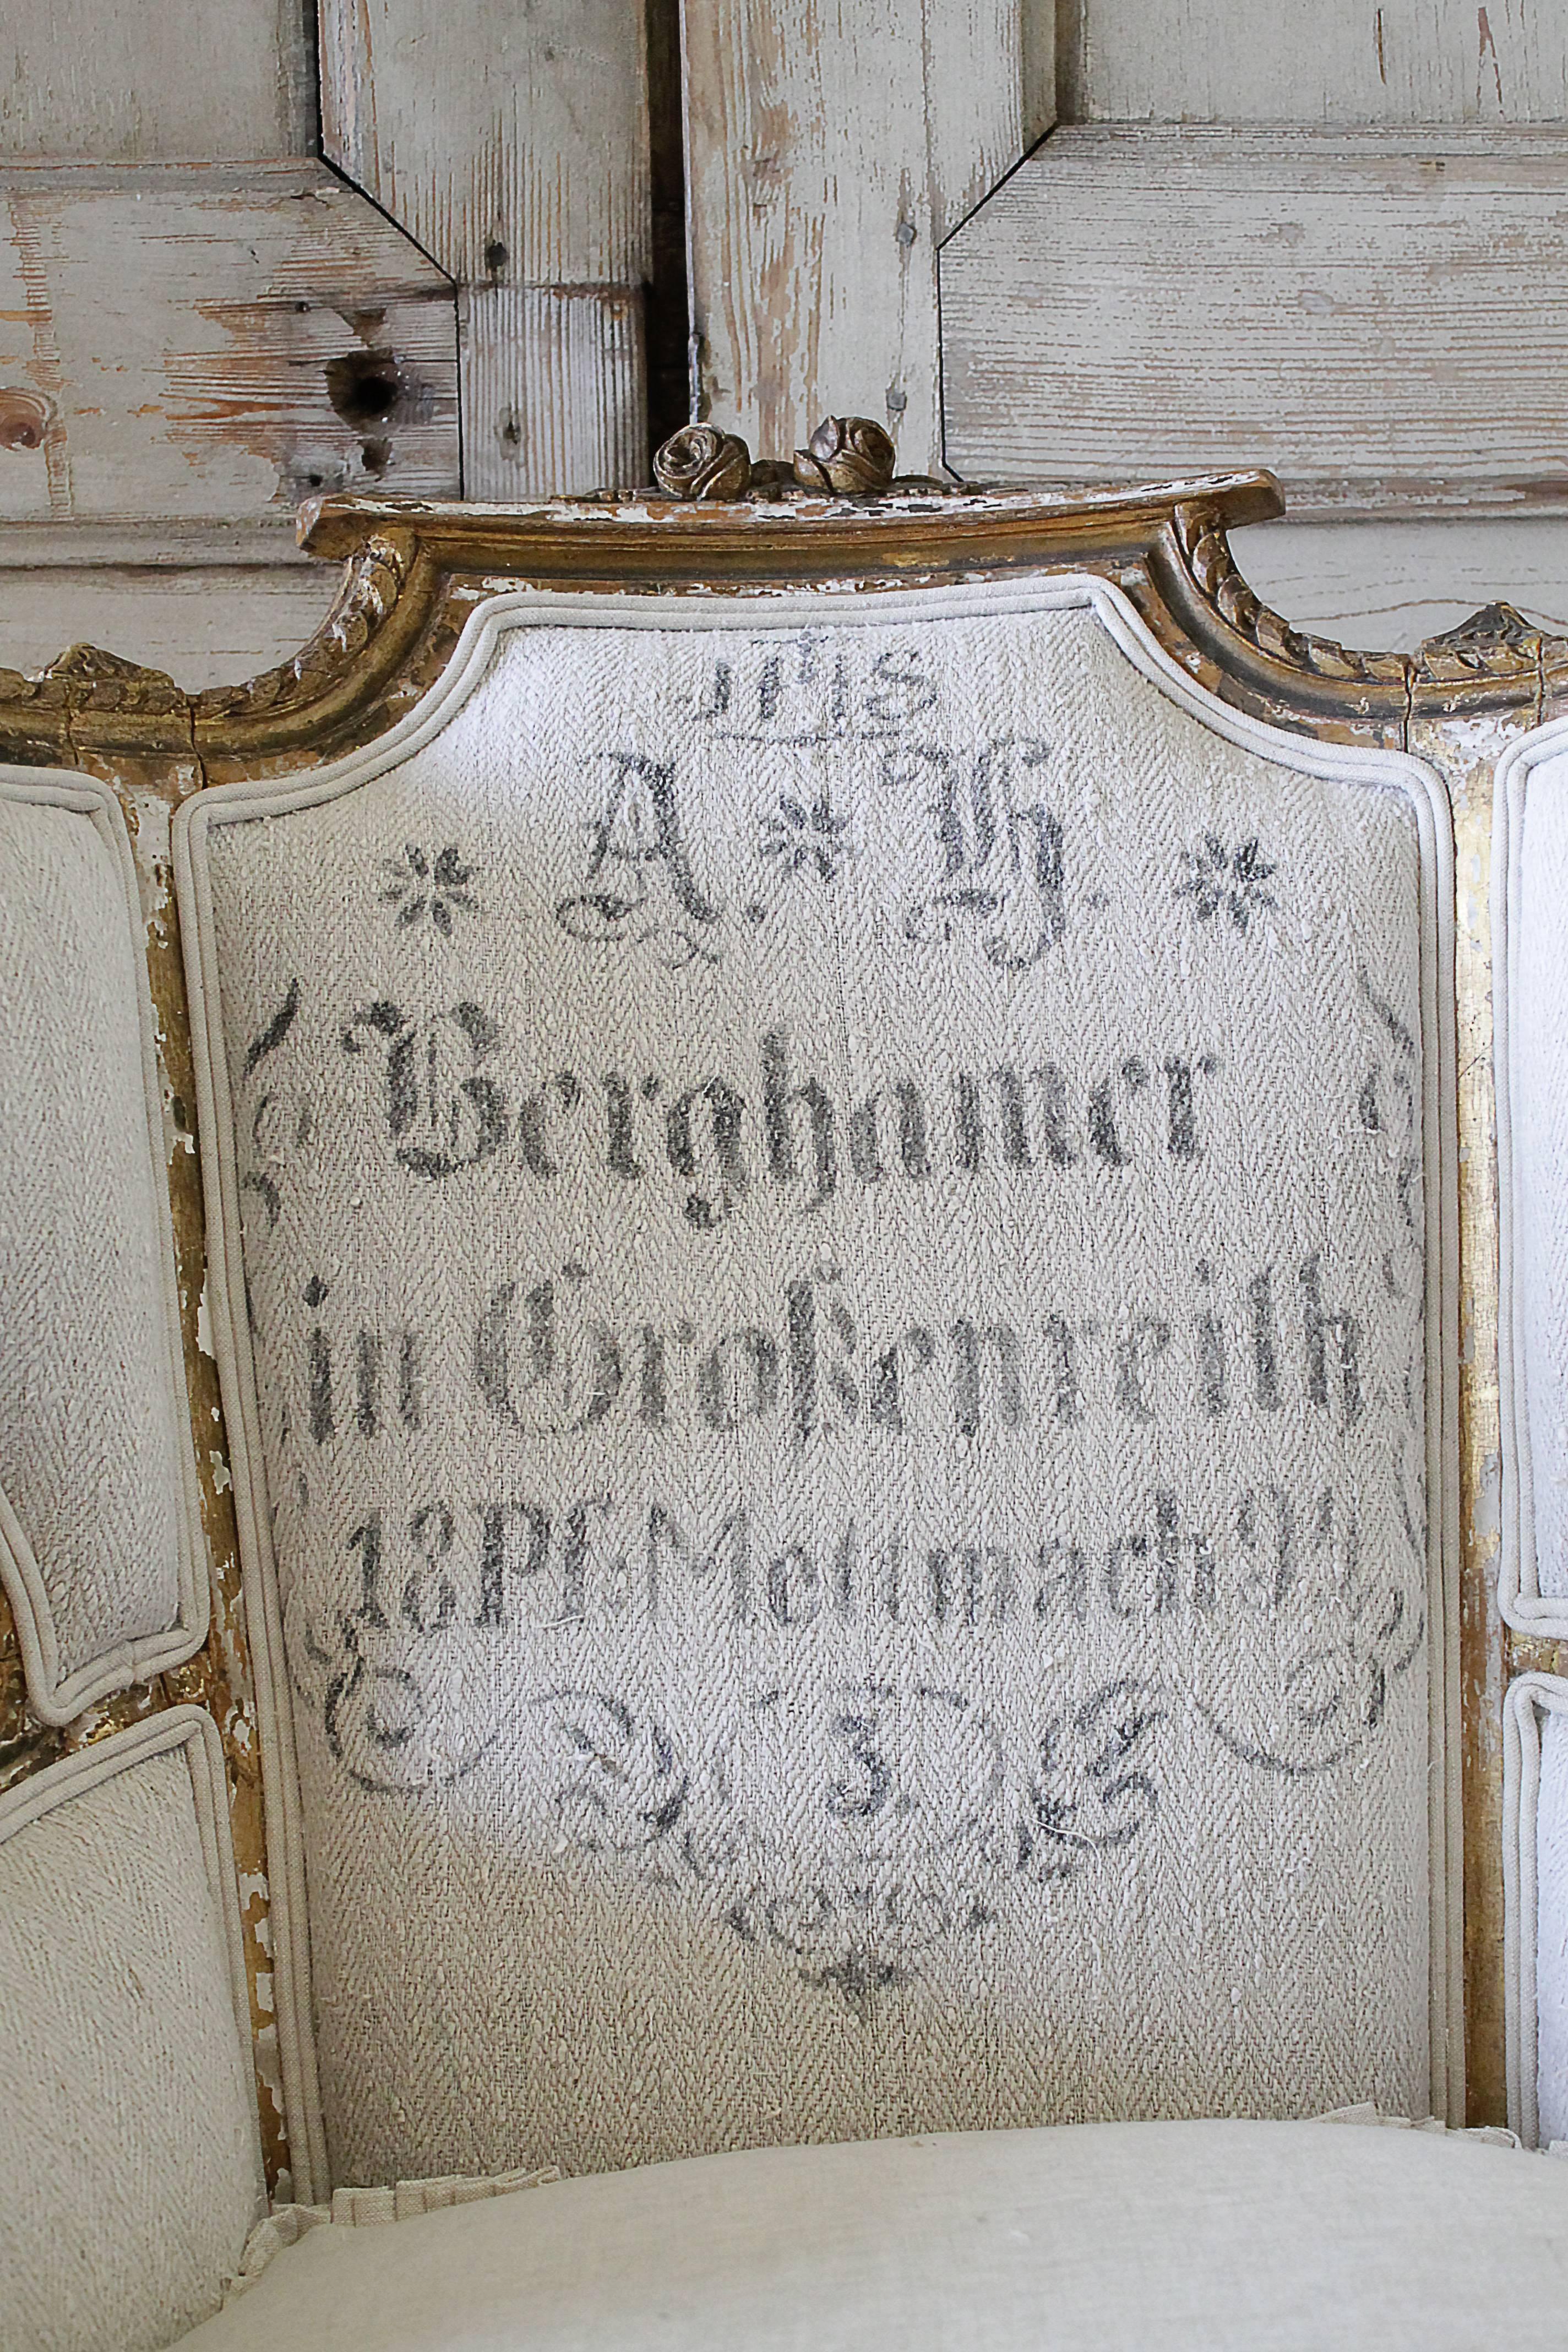 A. H.
Berghamer
in Großenreith
18 Pf. Mettmach 91
3